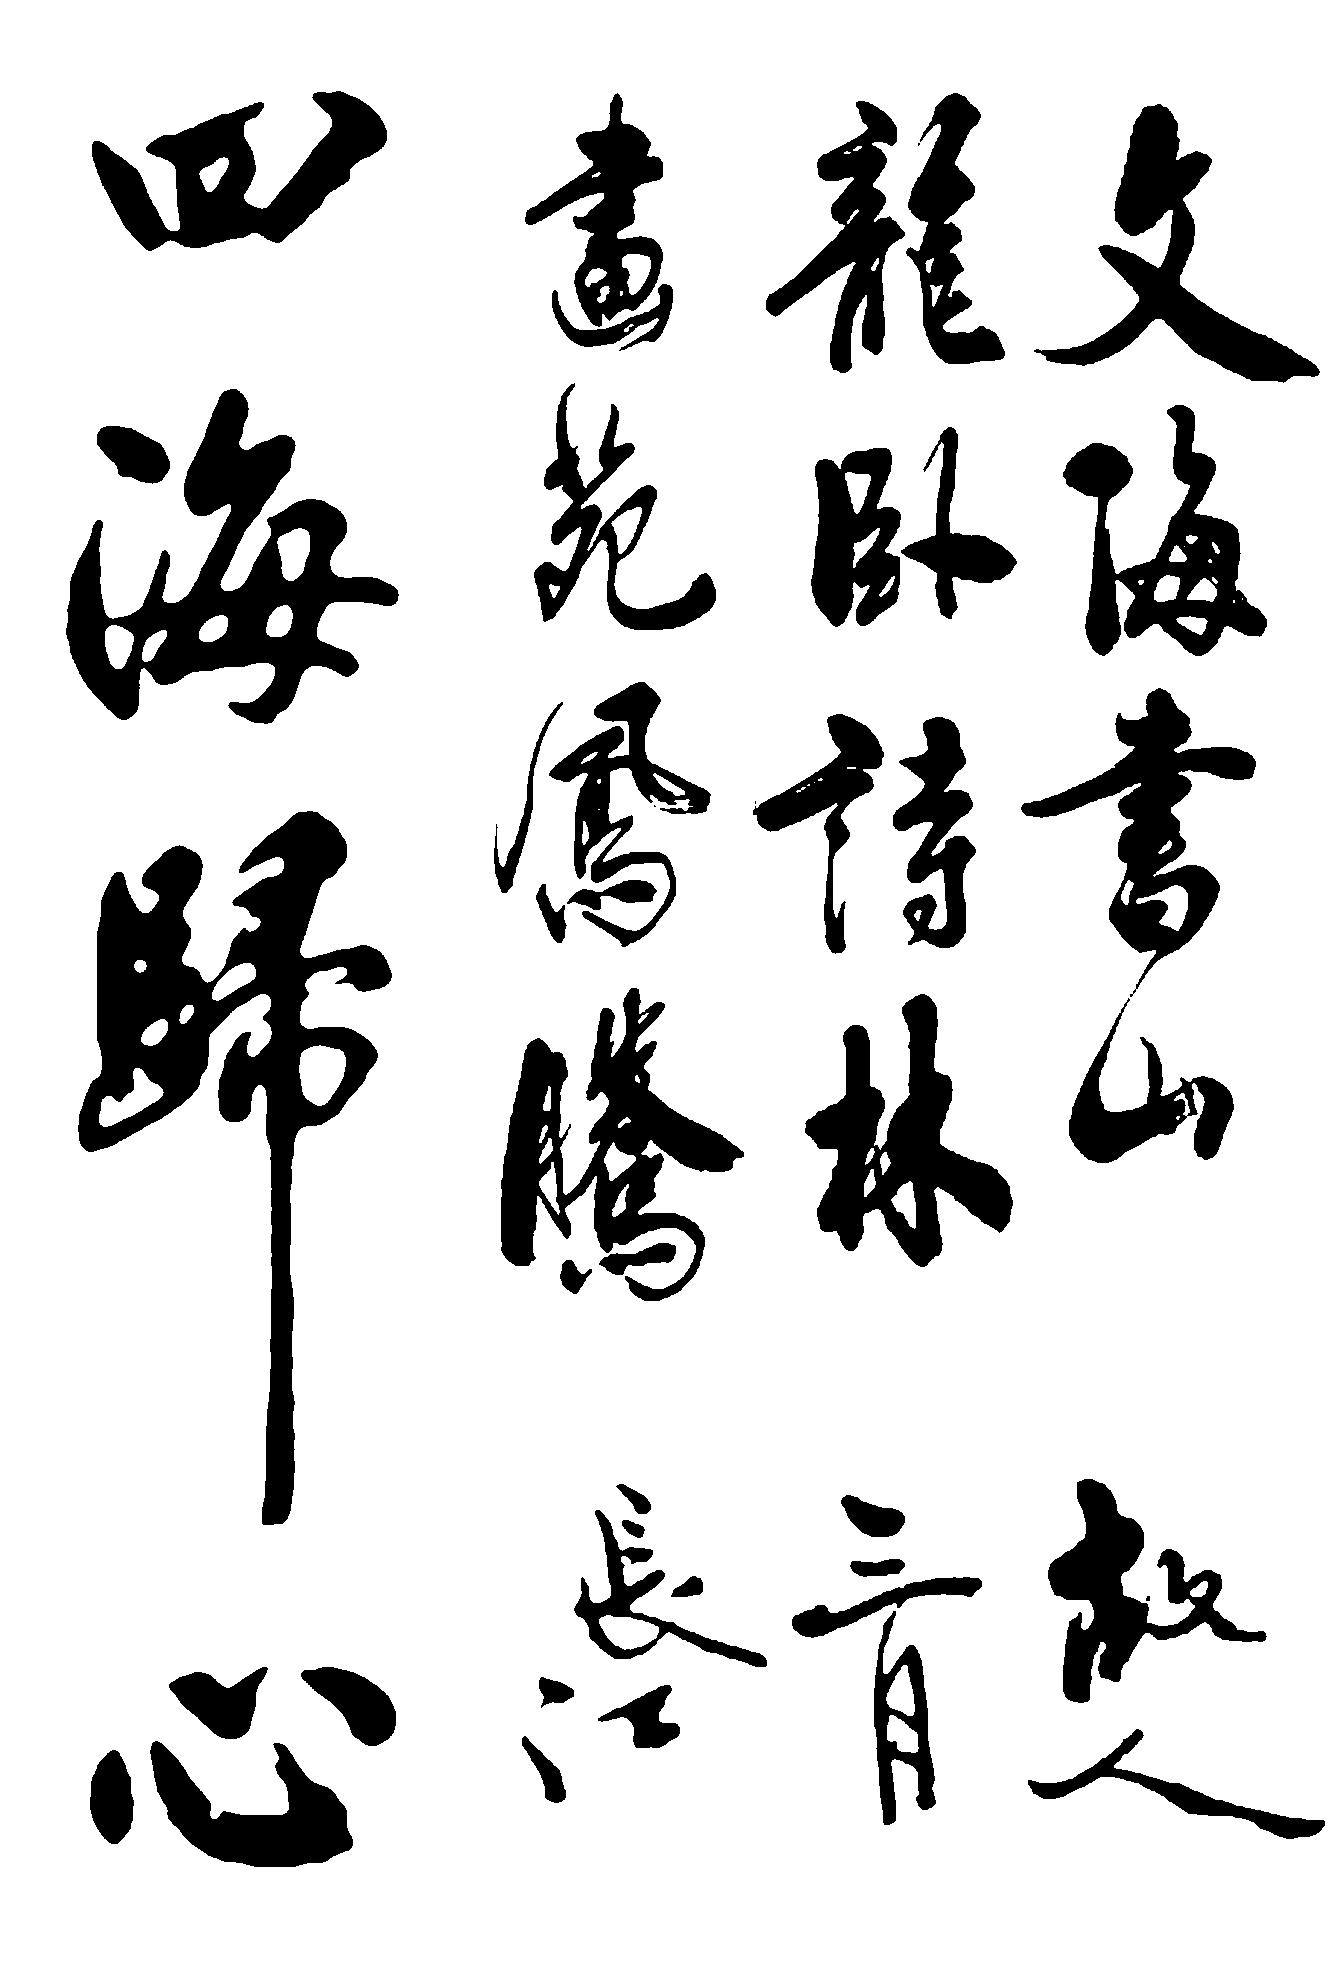 文海書山
龍臥詩林
畫苑鳳騰
四海歸心
故人
三月
長江